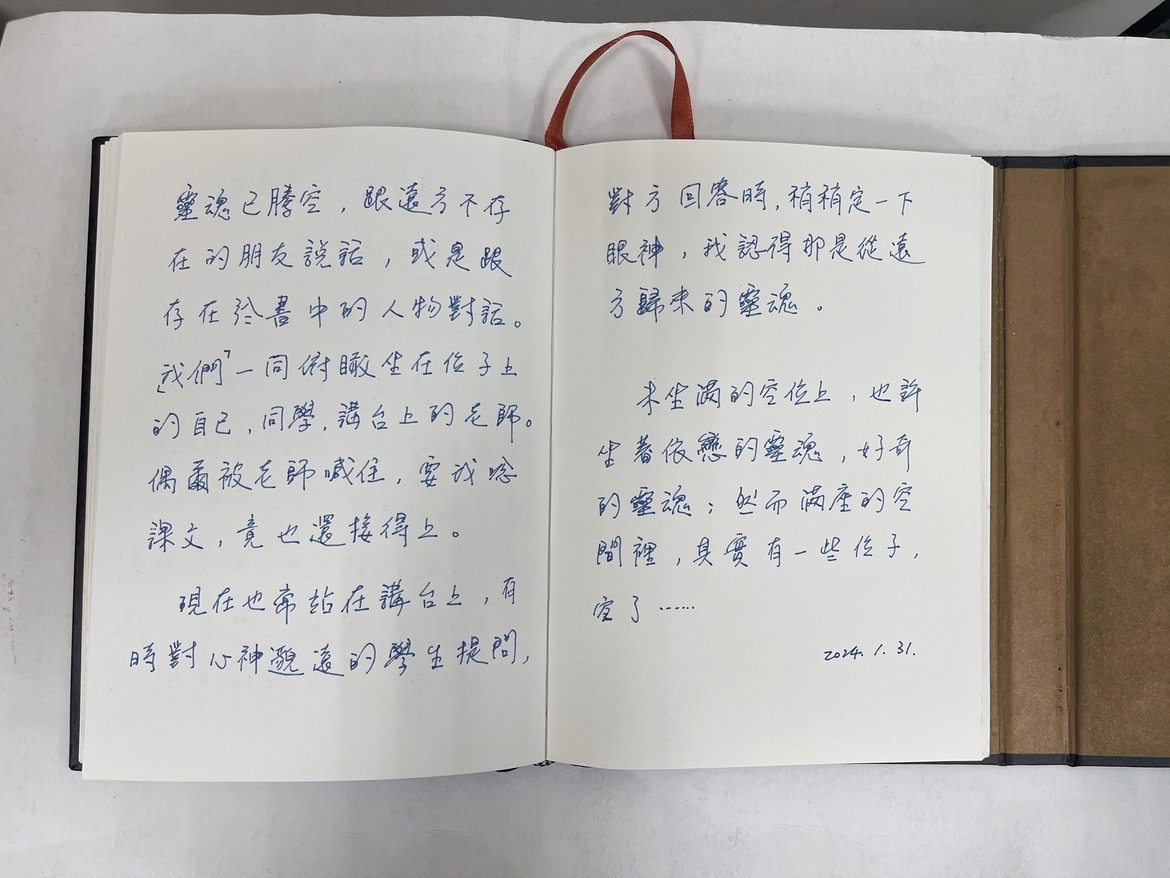 靈魂已騰空，跟遠方不存
在的朋友說話，或是跟
存在於書中的人物對話。
「我們」一同俯瞰坐在位子上
的自己，同學，講台上的老師。
偶爾被老師喊住，要我唸
課文，竟也還接得上。
現在也常站在講台上，有
時對心神邈遠的學生提問，
對方回答時，稍稍定一下
眼神，我認得那是從遠
方歸來的靈魂。
未坐滿的空位上，也許
坐著依戀的靈魂，好奇
的靈魂；然而滿座的空
間裡，其實有一些位子，
空了……
2024.1.31.